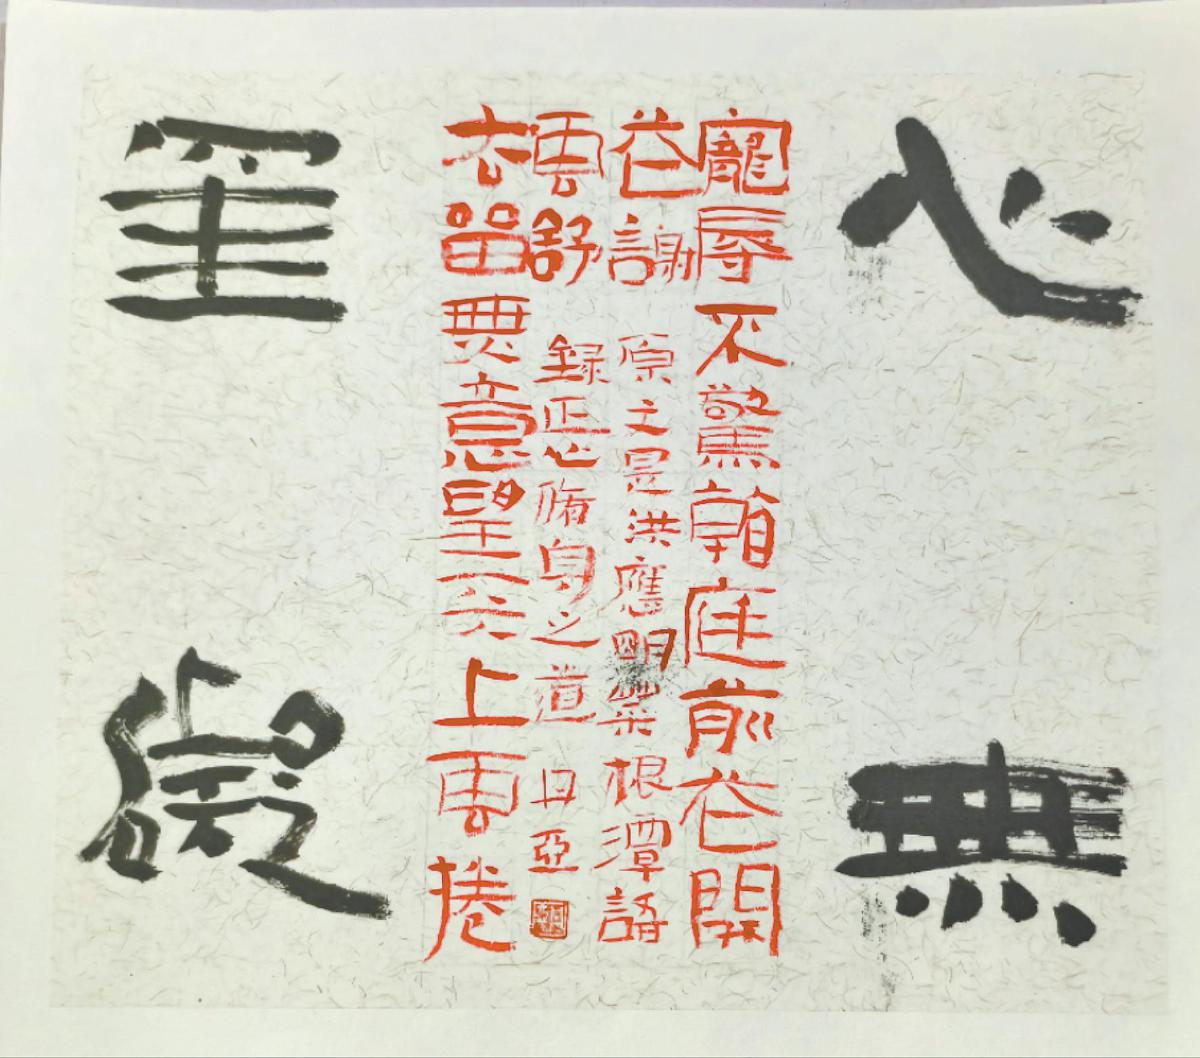 心無
罣礙
寵辱不驚看庭前花開
花謝
去留無意望天上雲捲
雲舒
原文是洪應明菜根潭語
錄正心脩身之道
亞